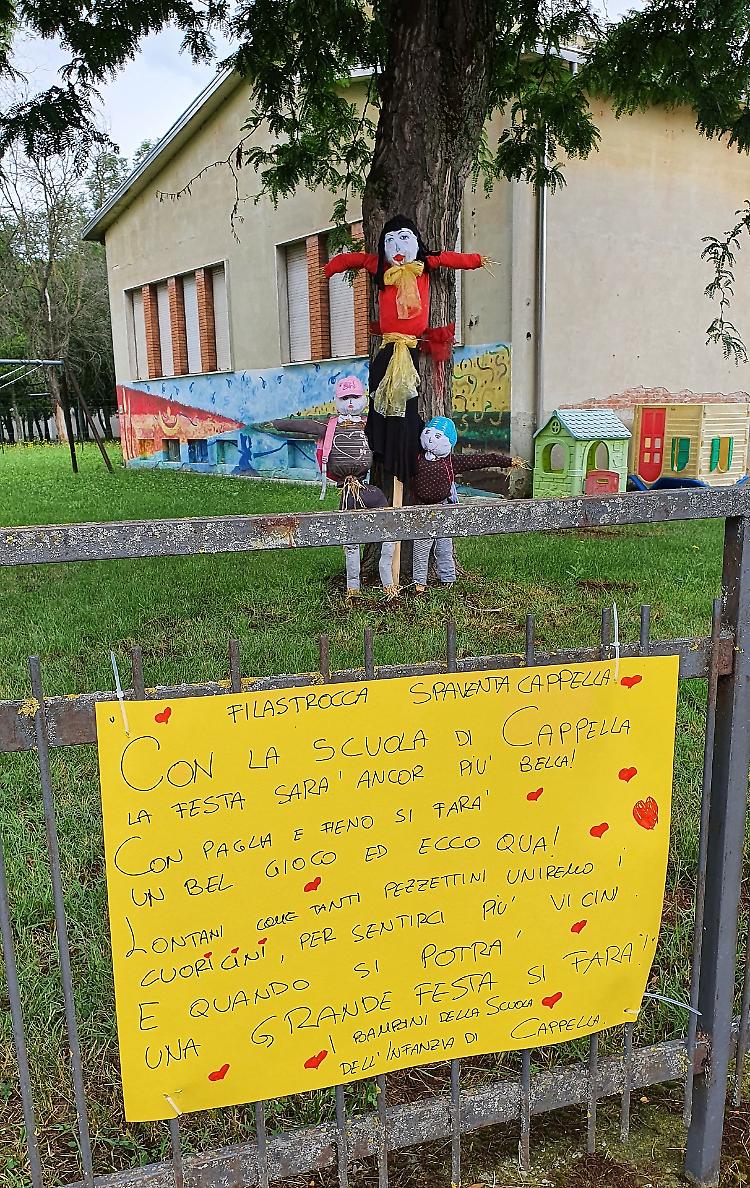 FILASTROCCA SPAVENTACAPPELLA!
CON LA SCUOLA DI CAPPELLA
LA FESTA SARA' ANCOR PIU' BELLA!
CON PAGLIA E FIENO SI FARA'
UN BEL GIOCO ED ECCO QUA!
LONTANI COME TANTI PEZZETTINI UNIREMO I
CUORICINI, PER SENTIRCI PIU' VICINI.
E QUANDO SI POTRA',
UNA GRANDE FESTA SI FARA'!
I BAMBINI DELLA SCUOLA
DELL'INFANZIA DI CAPPELLA